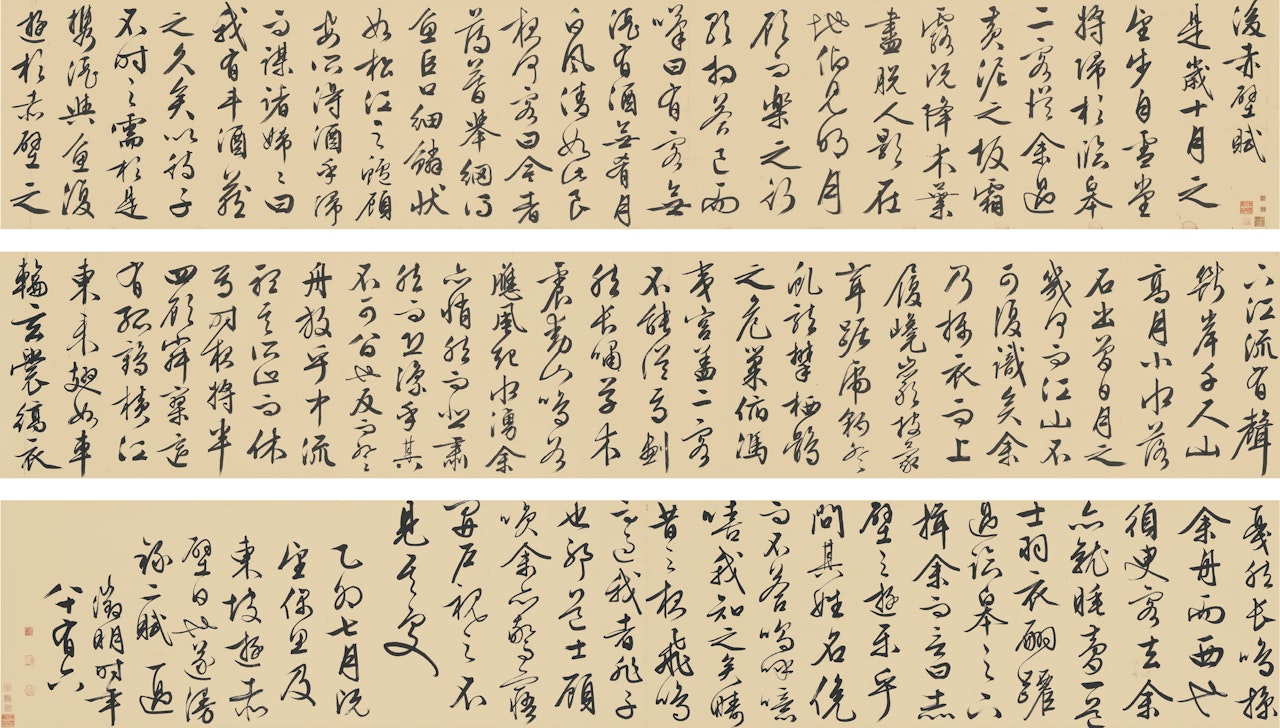 後赤壁賦
是歲十月之
望步自雪堂
將歸於臨皋
二客從余過
黃泥之坂霜
露既降木葉
盡脫人影在
地仰見明月
顧而樂之行
歌相答已而
嘆曰有客無
酒有酒無肴月
白風清如此良
夜何客曰今者
薄暮舉網得
魚巨口細鱗狀
如松江之鱸顧
安所得酒乎歸
而謀諸婦〻曰
我有斗酒藏
之久矣以待子
不時之需於是
攜酒與魚復
遊於赤壁之
下江流有聲
斷岸千尺山
高月小水落
石出曾日月之
幾何而江山不
可復識矣余
乃攝衣而上
履巉岩披蒙
茸踞虎豹登
虬龍攀栖鶻
之危巢俯馮
夷宮蓋二客
不能從焉劃
然長嘯草木
震動山鳴谷
應風起水湧余
亦悄然而悲肅
然而恐凜乎其
不可留也反而登
舟放乎中流
聽其所止而休
焉時夜將半
四顧寂寥適
有孤鶴橫江
東來翅如車
輪玄裳縞衣
戛然長鳴掠
余舟而西也
須臾客去余
亦就睡夢一道
士羽衣翩躚
過臨皋之下
揖余而言曰赤
壁之遊樂乎
問其姓名俛
而不答嗚呼噫
嘻我知之矣疇
昔之夜飛鳴
而過我者非子
也耶道士顧
笑余亦驚寤
開戶視之不
見其處
乙卯七月既
望偶思及
東坡遊赤
壁日也遂漫
錄二賦一過
徵明時年
八十有六